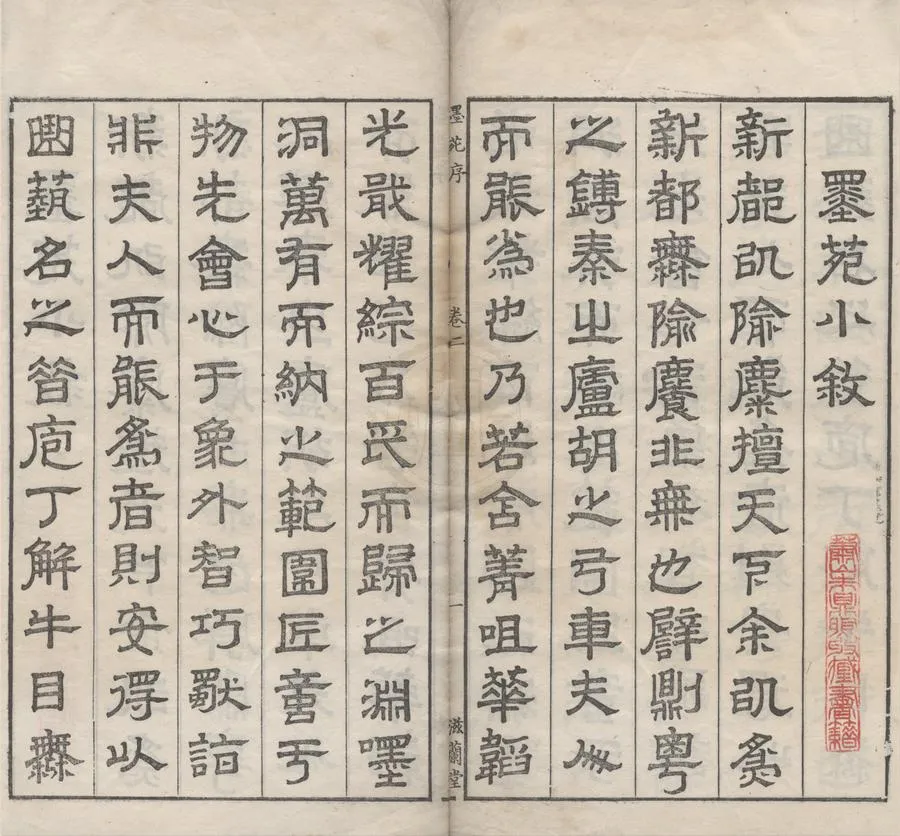 墨苑小敘
新都㠯隃麋擅天下余㠯為
新都無隃麋非無也譬則粵
之鎛秦之廬胡之弓車夫人
而能為也乃若含菁咀華韜
墨苑序 卷二 一 滋蘭堂
光戢耀綜百氏而歸之淵嘿
洞萬有而納之範圍匠意于
物先會心于象外智巧猷詣
非夫人而能為者則安得以
曲藝名之昔庖丁解牛目無
藏書籍